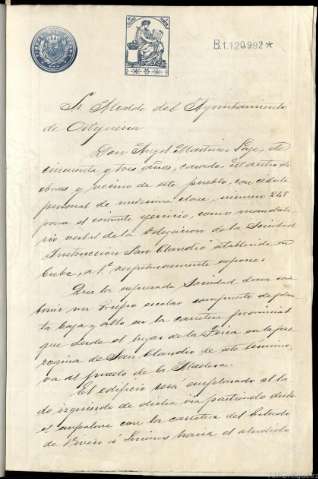 B.1.120.992 *
Sr Alcalde del Ayuntamiento
de Ortigueira
Don Angel Martinez, de
cincuenta y tres años, casado, Maestro de
obras y vecino de este pueblo, con cédula
personal de clase, número 248
para el corriente ejercicio, como mandata
rio verbal de la Delegacion de la Sociedad
Instruccion San Claudio establecida en
Cuba, á V. respetuosamente expone:
Que la expresada Sociedad desea cons
truir un grupo escolar compuesto de plan
ta baja y alta en la carretera provincial
que desde el lugar de la Feria en la par
roquia de San Claudio de este término,
va al puerto de la
El edificio será emplazado al la
do izquierdo de dicha via partiendo desde
el empalme con la carretera del Estado
de Vivero á Linares hacia el aludido